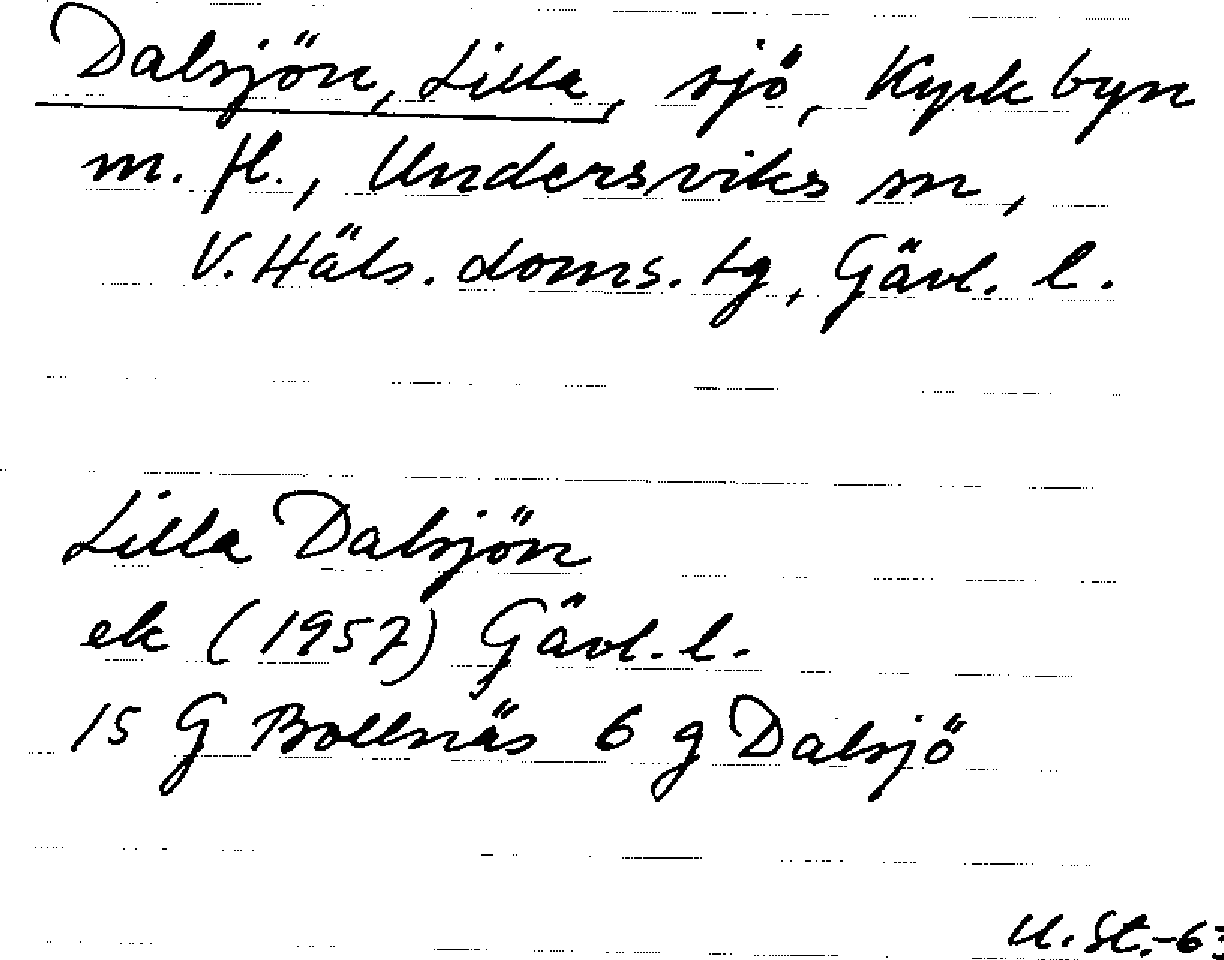 Dalsjön, Lilla, sjö, Kyrkbyn
m. fl., Undersviks sn,
V. Häls. doms. tg, Gävl. l.
Lilla Dalsjön
ek (1957) Gävl. l.
15 G Bollnäs 6 g Dalsjö
U. St.-63